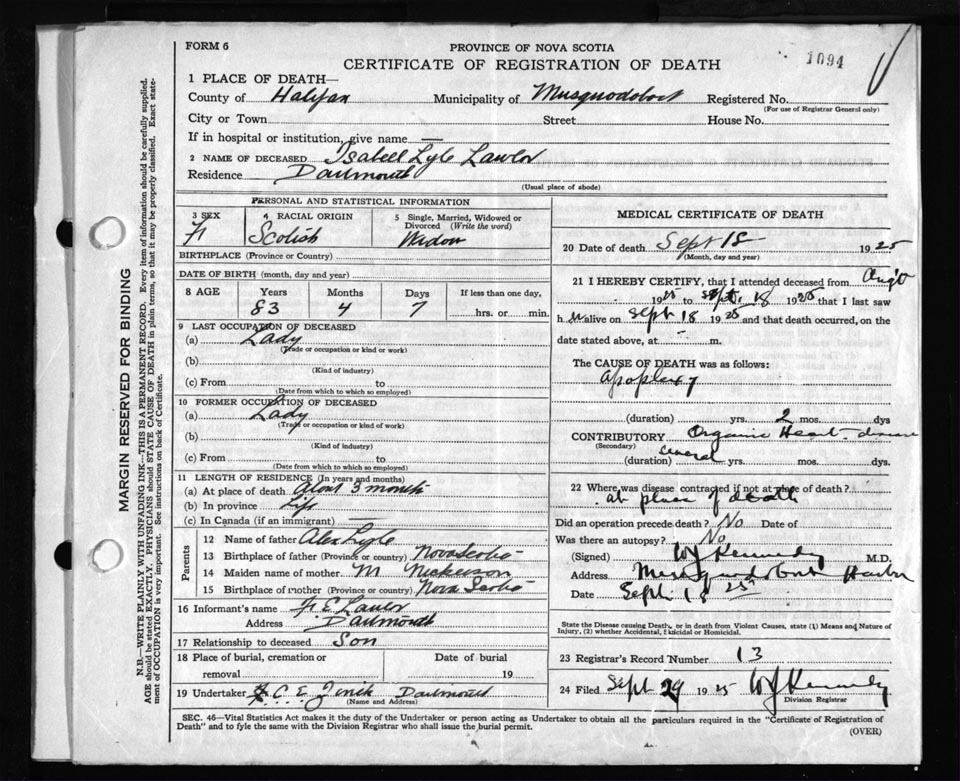 FORM 6
PROVINCE OF NOVA SCOTIA
CERTIFICATE OF REGISTRATION OF DEATH
1094
1 PLACE OF DEATH—
County of Halifax Municipality of Musquodoboit Registered No.
(For use of Registrar General only)
City or Town Street House No.
If in hospital or institution, give name —
2 NAME OF DECEASED Isabell Lyle Lawlor
Residence Dartmouth
(Usual place of abode)
PERSONAL AND STATISTICAL INFORMATION
3 SEX
F
4 RACIAL ORIGIN
Scotish
5 Single, Married, Widowed or Divorced (Write the word)
Widow
BIRTHPLACE (Province or Country)
DATE OF BIRTH (month, day and year)
8 AGE Years Months Days If less than one day,
83 4 7 hrs. or min.
9 LAST OCCUPATION OF DECEASED
(a) Lady
(Trade or occupation or kind or work)
(b)
(Kind of industry)
(c) From to
(Date from which to which so employed)
10 FORMER OCCUPATION OF DECEASED
(a) Lady
(Trade or occupation or kind of work)
(b)
(Kind of industry)
(c) From to
(Date from which to which so employed)
11 LENGTH OF RESIDENCE (In years and months)
(a) At place of death About 3 months
(b) In province Life
(c) In Canada (if an immigrant)
Parents
12 Name of father Alex Lyle
13 Birthplace of father (Province or country) Nova Scotia
14 Maiden name of mother M Nickerson
15 Birthplace of mother (Province or country) Nova Scotia
16 Informant's name F E Lawlor
Address Dartmouth
17 Relationship to deceased Son
18 Place of burial, cremation or removal Date of burial 19
19 Undertaker C. E. Zinik Dartmouth
(Name and Address)
MEDICAL CERTIFICATE OF DEATH
20 Date of death Sept 18 1925
(Month, day and year)
21 I HEREBY CERTIFY, that I attended deceased from Aug
1925 to Sept. 18 1925 that I last saw
h er alive on Sept 18 1925 and that death occurred, on the
date stated above, at m.
The CAUSE OF DEATH was as follows:
Apoplexy
(duration) yrs. 2 mos. dys
CONTRIBUTORY Organic Heart disease
(Secondary)
(duration) several yrs. mos. dys.
22 Where was disease contracted if not at place of death?
at place of death
Did an operation precede death? No Date of
Was there an autopsy? No
(Signed) W J Kennedy M.D.
Address Musquodoboit Harbor
Date Sept. 18 25
State the Disease causing Death, or in death from Violent Causes, state (1) Means and Nature of Injury, (2) whether Accidental, Suicidal or Homicidal.
23 Registrar's Record Number 13
24 Filed Sept 29 1925 W J Kennedy
Division Registrar
SEC. 46—Vital Statistics Act makes it the duty of the Undertaker or person acting as Undertaker to obtain all the particulars required in the "Certificate of Registration of
Death" and to fyle the same with the Division Registrar who shall issue the burial permit.
(OVER)
MARGIN RESERVED FOR BINDING
N.B.—WRITE PLAINLY WITH UNFADING INK—THIS IS A PERMANENT RECORD. Every item of information should be carefully supplied.
AGE should be stated EXACTLY. PHYSICIANS should STATE CAUSE OF DEATH in plain terms, so that it may be properly classified. Exact statement of OCCUPATION is very important. See instructions on back of Certificate.